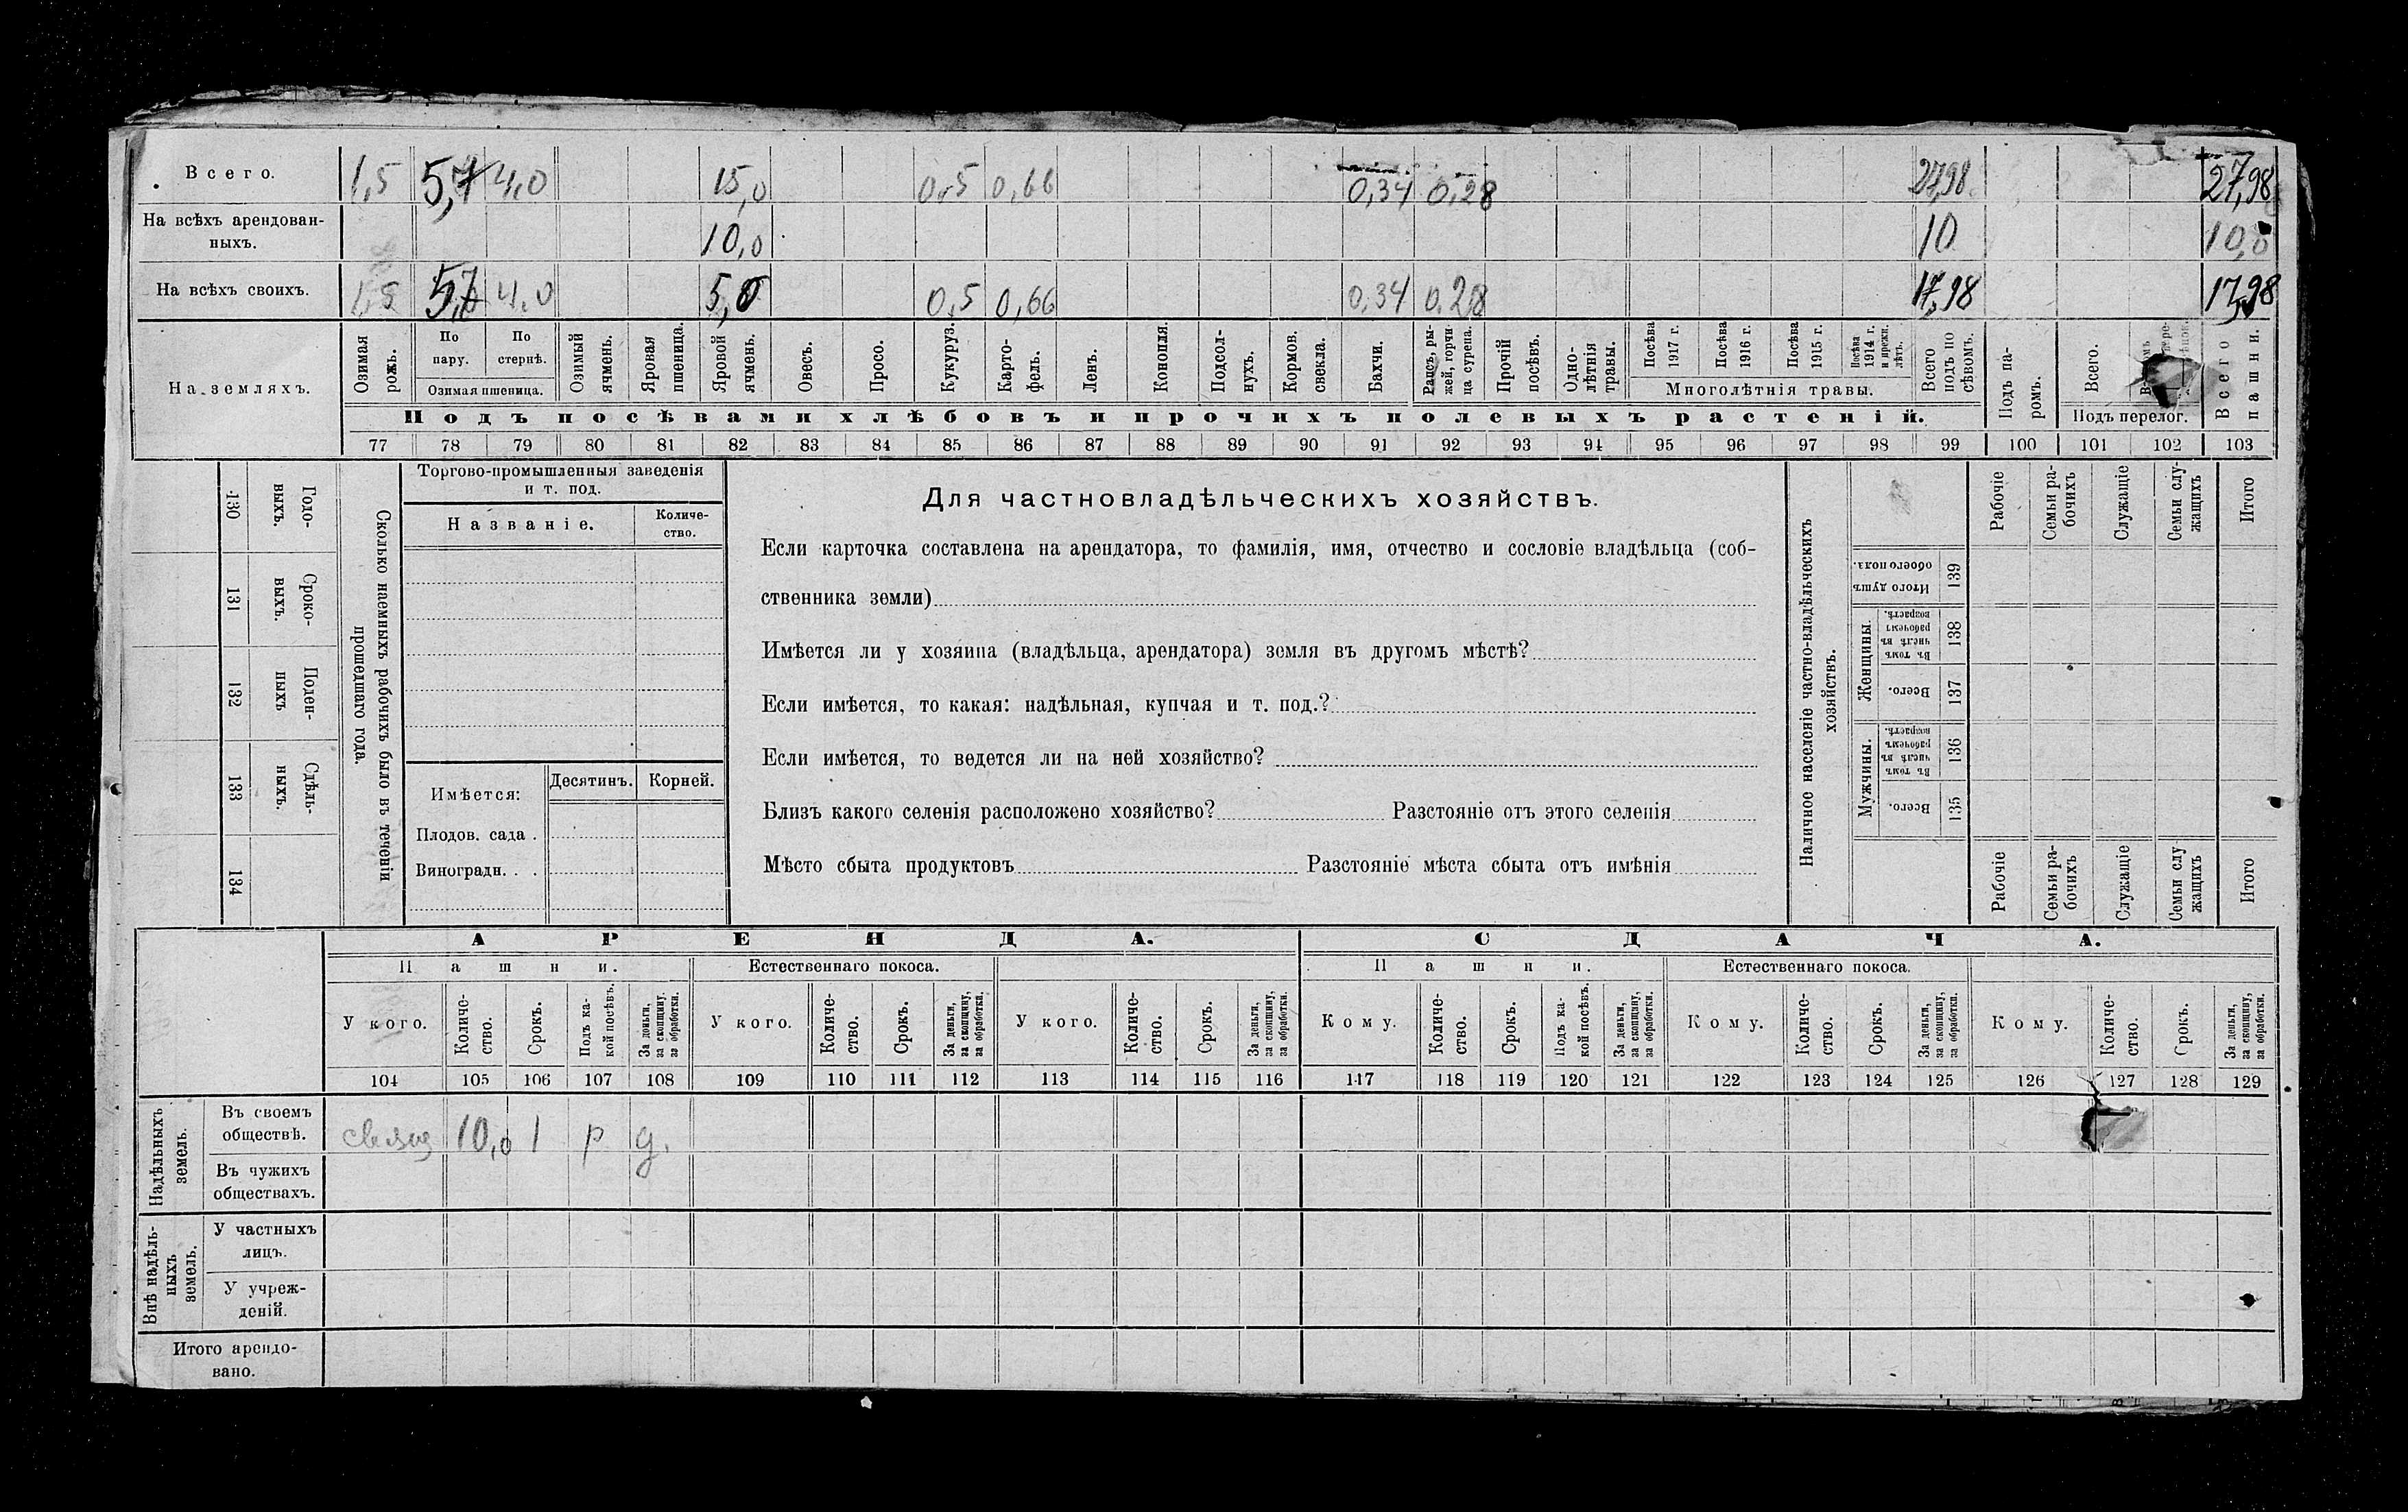 Всего. 1,5 5,7 4,0 15,0 0,5 0,66 0,34 0,28 27,98 27,98
На всѣхъ арендован-
ныхъ. 10,0 10 10,0
На всѣхъ своихъ. 1,5 5,7 4,0 5,0 0,5 0,66 0,34 0,28 17,98 17,98
На земляхъ.
Озимая рожь.
По пару.
По стернѣ.
Озимая пшеница.
Озимый ячмень.
Яровая пшеница.
Яровой ячмень.
Овесъ.
Просо.
Кукуруз.
Карто-
фель.
Ленъ.
Конопля.
Подсол-
нухъ.
Кормов. свекла.
Бахчи.
Рапсъ, ры-
жей, горчи-
ца сурепа.
Прочій посѣвъ.
Одно-
лѣтнія травы.
Посѣва 1917 г.
Посѣва 1916 г.
Посѣва 1915 г.
Посѣва 1914 г. и прежн. лѣтъ.
Многолѣтнія травы.
Всего подъ по
сѣвомъ.
Подъ па-
ромъ.
Всего.
Подъ перелог.
Всего пашни.
Подъ посѣвами хлѣбовъ и прочихъ полевыхъ растеній.
77 78 79 80 81 82 83 84 85 86 87 88 89 90 91 92 93 94 95 96 97 98 99 100 101 102 103
130 Годо-
выхъ.
131 Сроко-
выхъ.
132 Поден-
ныхъ
133 Сдѣль-
ныхъ.
134
Сколько наемныхъ рабочихъ было въ теченіи
прошедшаго года.
Торгово-промышленныя заведенія
и т. под.
Названіе.
Количе-
ство.
Имѣется:
Десятинъ. Корней.
Плодов. сада .
Виноградн. . .
Для частновладѣльческихъ хозяйствъ.
Если карточка составлена на арендатора, то фамилія, имя, отчество и сословіе владѣльца (соб-
ственника земли)
Имѣется ли у хозяина (владѣльца, арендатора) земля въ другомъ мѣстѣ?
Если имѣется, то какая: надѣльная, купчая и т. под.?
Если имѣется, то ведется ли на ней хозяйство?
Близъ какого селенія расположено хозяйство? Разстояніе отъ этого селенія
Мѣсто сбыта продуктовъ Разстояніе мѣста сбыта отъ имѣнія
Наличное населеніе частно-владѣльческихъ
хозяйствъ.
Рабочіе
Семьи ра-
бочихъ
Служащіе
Семьи слу-
жащихъ
Итого
Итого душъ
обоего пола.
139
Женщины.
Въ томъ
числѣ въ
рабочемъ
возрастѣ.
138
Всего.
137
Мужчины.
Въ томъ
числѣ въ
рабочемъ
возрастѣ.
136
Всего.
135
Рабочіе
Семьи ра-
бочихъ
Служащіе
Семьи слу
жащихъ
Итого
АРЕНДА. СДАЧА.
Пашни. Естественнаго покоса. Пашни. Естественнаго покоса.
У кого.
Количе-
ство.
Срокъ.
Подъ ка-
кой посѣвъ.
За деньги,
за скопщину.
за обработки.
У кого.
Количе-
ство.
Срокъ.
За деньги,
за скопщину,
за обработки.
У кого.
Количе-
ство.
Срокъ.
За деньги,
за скопщину,
за обработки.
Кому.
Количе-
ство.
Срокъ.
Подъ ка-
кой посѣвъ.
За деньги,
за скопщину,
за обработки.
Кому.
Количе-
ство.
Срокъ.
За деньги,
за скопщину,
за обработки.
Кому.
Количе-
ство.
Срокъ.
За деньги,
за скопщину,
за обработки.
104 105 106 107 108 109 110 111 112 113 114 115 116 117 118 119 120 121 122 123 124 125 126 127 128 129
Надѣльныхъ
земель.
Въ своемъ
обществѣ. 10,0 1 р д.
Въ чужихъ
обществахъ.
Внѣ надѣль-
ныхъ
земель.
У частныхъ
лицъ.
У учреж-
деній.
Итого арендо-
вано.